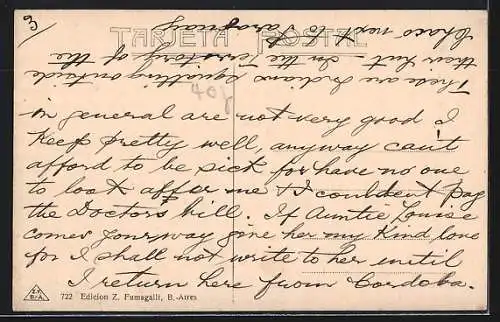 TARJETA POSTAL
These are Indians squatting outside
their hut - In the Territory of the
Chaco next to Paraguay
40
in general are not very good I
keep pretty well, anyway can't
afford to be sick, for have no one
to look affter me & I couldent pay
the Doctors bill. If Auntie Louise
comes your way give her my Kind love
for I shall not write to her until
I return here from Cordoba.
722 Edicion Z. Fumagalli, B.-Aires